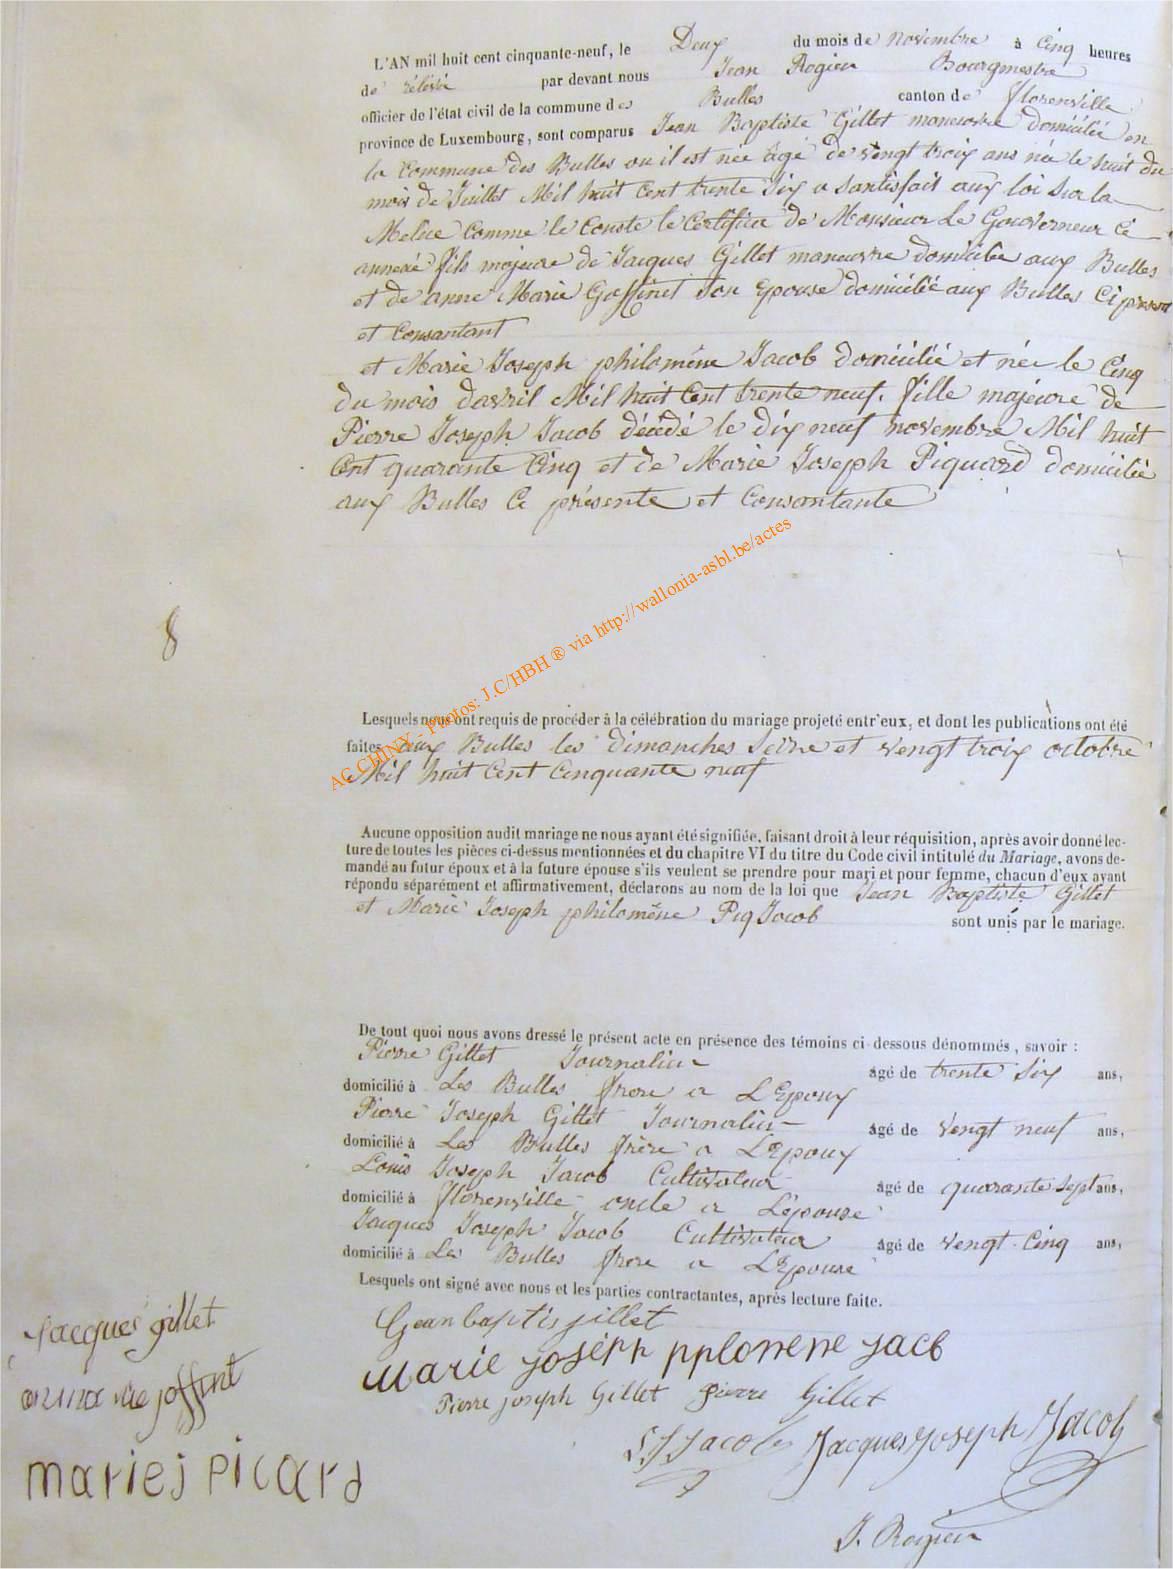 L'AN mil huit cent cinquante-neuf, le Deux du mois de novembre à Cinq heures
de rélévé par devant nous Jean Rogier Bourgmestre
officier de l'état civil de la commune des Bulles canton de florenville
province de Luxembourg, sont comparus Jean Baptiste Gillet maneuvre domicilié en
la Commune des Bulles ou il est née âgé de vengt troix ans née le huit du
mois de Juillet Mil huit Cent trente Six a santisfait aux loi sur la
Melice Comme le Conste le Certificat de Monsieur Le Gouverneur Ci
annexé fils majeure de Jacques Gillet maneuvre domicilié aux Bulles
et de anne Marie Goffinet Son Epouse domicilié aux Bulles Ci présent
et Consantant
et Marie Joseph philomêne Jacob domicilié et née le Cinq
du mois davril Mil huit Cent trente neuf. fille majeure de
Pierre Joseph Jacob décédé le dix neuf novembre Mil huit
Cent quarante Cinq et de Marie Joseph Piquard domicilié
aux Bulles Ce présente et Consantante
8
AC CHINY - Photos: J.C/HBH ® via http://wallonia-asbl.be/actes
Lesquels nous ont requis de procéder à la célébration du mariage projeté entr'eux, et dont les publications ont été
faites aux Bulles les dimanches Seize et vengt troix octobre
Mil huit Cent Cinquante neuf
Aucune opposition audit mariage ne nous ayant été signifiée, faisant droit à leur réquisition, après avoir donné lec-
ture de toutes les pièces ci-dessus mentionnées et du chapitre VI du titre du Code civil intitulé du Mariage, avons de-
mandé au futur époux et à la future épouse s'ils veulent se prendre pour mari et pour femme, chacun d'eux ayant
répondu séparément et affirmativement, déclarons au nom de la loi que Jean Baptiste Gillet
et Marie Joseph philomêne Piq Jacob sont unis par le mariage.
De tout quoi nous avons dressé le présent acte en présence des témoins ci-dessous dénommés, savoir :
Pierre Gillet Journalier âgé de trente Six ans,
domicilié à Les Bulles frere a L'Epoux
Pierre Joseph Gillet Journalier âgé de vengt neuf ans,
domicilié à Les Bulles frère a L'Epoux
Louis Joseph Jacob Cultivateur âgé de quarante Sept ans,
domicilié à florenville oncle a L'épouse
Jacques Joseph Jacob Cultivateur âgé de vengt-Cinq ans,
domicilié à Les Bulles frere a L'Epouse
Lesquels ont signé avec nous et les parties contractantes, après lecture faite.
Jacques gillet
Gean baptis gillet
marie joseph pplomene jacb
Pierre joseph Gillet pierre Gillet
L J Jacob Jacques Joseph Jacob
marie j picard
J. Rogier